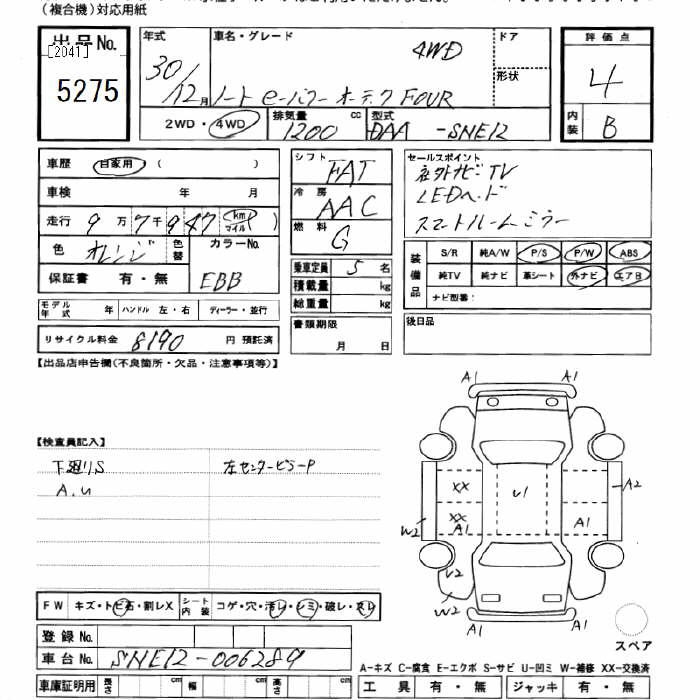 (複合機)対応用紙
出品No.
[2041]
5275
年式
30/12月
車名・グレード
4WD
ノート e-パワー オーテク FOUR
ドア
形状
評価点
4
内装
B
2WD・4WD
排気量
1200
cc
型式
DAA -SNE12
車歴
自家用 ( )
車検 年 月
走行 9万7千947 (km マイル)
色 オレンジ
色替
カラーNo.
EBB
保証書 有・無
シフト
FAT
冷房
AAC
燃料
G
乗車定員 5 名
積載量 kg
総重量 kg
書類期限
月 日
セールスポイント
社外ナビTV
LEDヘッド
スマートルームミラー
装備品
S/R 純A/W P/S P/W ABS
純TV 純ナビ 革シート 外ナビ エアB
ナビ型番:
後日品
モデル年式 年 ハンドル 左・右 ディーラー・並行
リサイクル料金 8190 円 預託済
【出品店申告欄(不良箇所・欠品・注意事項等)】
【検査員記入】
下廻りS
左センターピラーP
A.U
A1 A1
XX U1 A2
XX A1 A1
W2
U2
W2
A1 A1
スペア
FW キズ・トビ石・割レX
シート内装 コゲ・穴・汚レ・シミ・破レ・スレ
登録No.
車台No. SNE12-006289
A－キズ C－腐食 E－エクボ S－サビ U－凹ミ W－補修 XX－交換済
車庫証明用 長さ cm 幅 cm 高さ cm
工具 有・無 ジャッキ 有・無